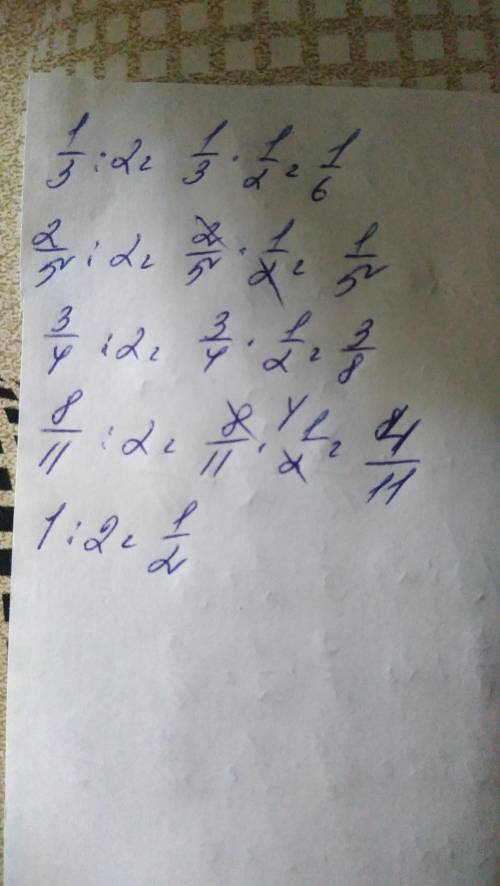 1/3 : 2 = 1/3 · 1/2 = 1/6
2/5 : 2 = 2/5 · 1/2 = 1/5
3/4 : 2 = 3/4 · 1/2 = 3/8
8/11 : 2 = 8/11 · 4 1/2 = 4/11
1 : 2 = 1/2